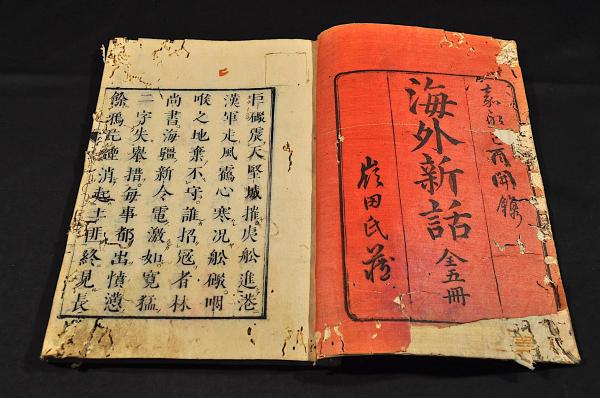 嘉永己酉開鐫
海外新話 全五冊
嶺田氏藏
巨礮震天堅城摧夷舩進港
漢軍走風鶴心寒况舩礮咽
喉之地棄不守誰招寇者林
尚書海疆新令電激如寛猛
二字失擧措每事都出憤懣
餘鴉片煙消起土匪終見長